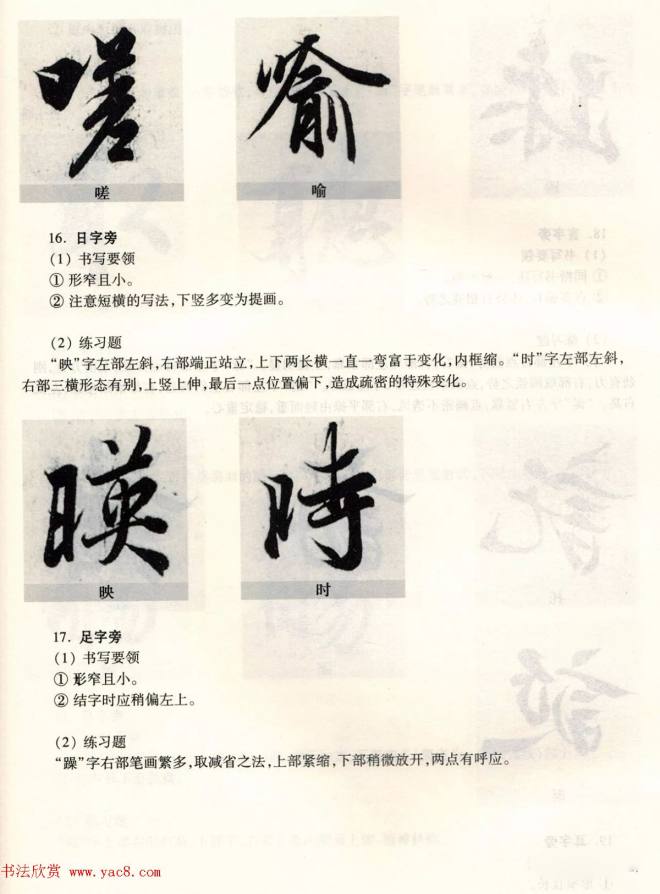 嗟 喻
嗟 喻
16. 日字旁
(1) 书写要领
① 形窄且小。
② 注意短横的写法,下竖多变为提画。
(2) 练习题
“映”字左部左斜,右部端正站立,上下两长横一直一弯富于变化,内框缩。“时”字左部左斜,
右部三横形态有别,上竖上伸,最后一点位置偏下,造成疏密的特殊变化。
暎 時
映 时
17. 足字旁
(1) 书写要领
① 形窄且小。
② 结字时应稍偏左上。
(2) 练习题
“躁”字右部笔画繁多,取减省之法,上部紧缩,下部稍微放开,两点有呼应。
书法欣赏 www.yac8.com